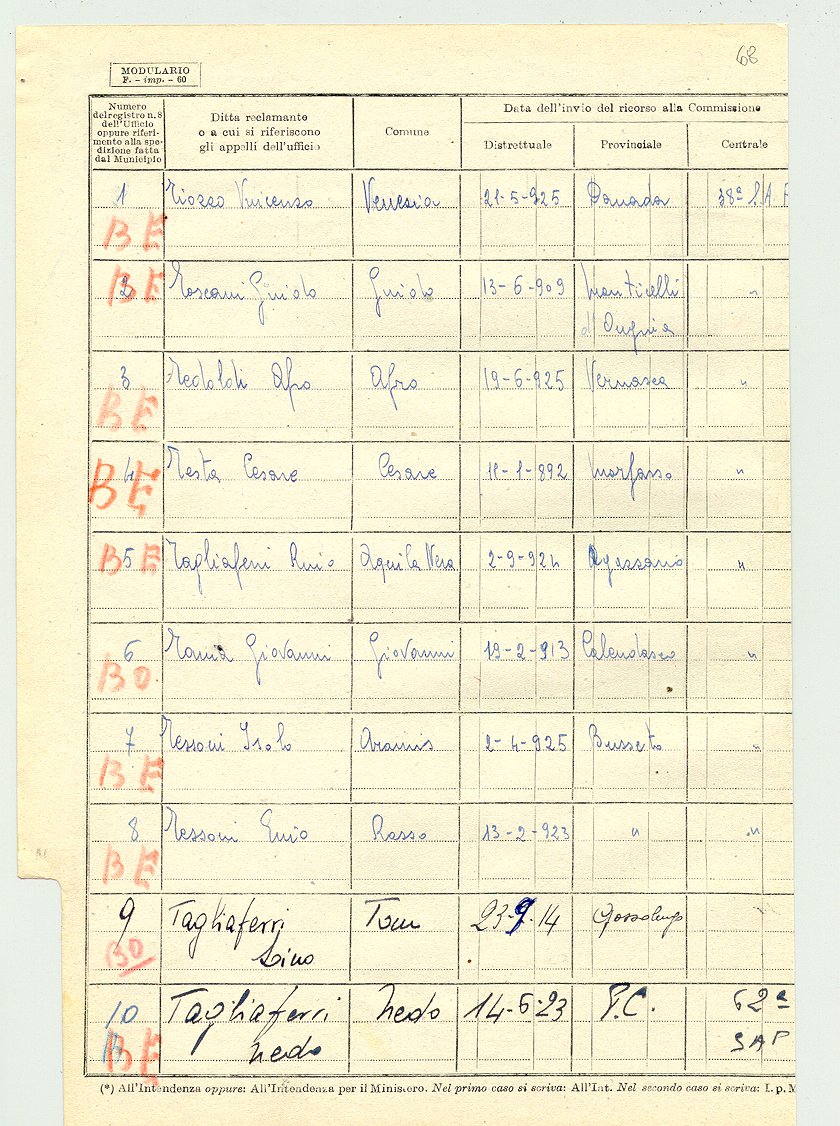 68
MODULARIO
F. - imp. - 60
Numero
del registro n. 8
dell'Ufficio
oppure riferi-
mento alla spe-
dizione fatta
dal Municipio
Ditta reclamante
o a cui si riferiscono
gli appelli dell'ufficio
Comune
Data dell'invio del ricorso alla Commissione
Distrettuale
Provinciale
Centrale
1 Vincenzo Venezia 21-5-925 38ª S.A.P
BE
2 Toscani Guido Guido 13-6-909 Monticelli "
BE
d'Ongina
3 Tedoldi Afro Afro 19-6-925 Vernasca "
BE
4 Testa Cesare Cesare 11-1-892 Morfasso "
BE
5 Tagliaferri Aquila Nera 2-9-924 Agazzano "
BE
6 Giovanni Giovanni 19-2-913 Calendasco "
BO
7 Tessoni Aramis 2-4-925 Busseto "
BE
8 Tessoni Enio Rosso 13-2-923 " "
BE
9 Tagliaferri Tom 23-9-14
Lino
BO
10 Tagliaferri Nedo 14-6-23 P.C. 62ª
Nedo SAP
BE
(*) All'Intendenza oppure: All'Intendenza per il Ministero. Nel primo caso si scriva: All'Int. Nel secondo caso si scriva: I. p. M